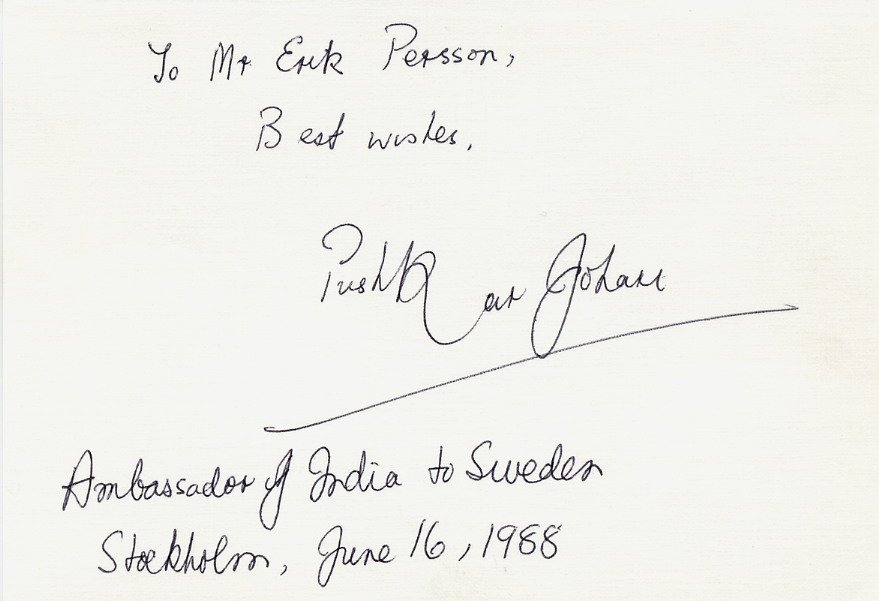 To Mr Erik Persson,
Best wishes,
Pushkar Johari
Ambassador of India to Sweden
Stockholm, June 16, 1988